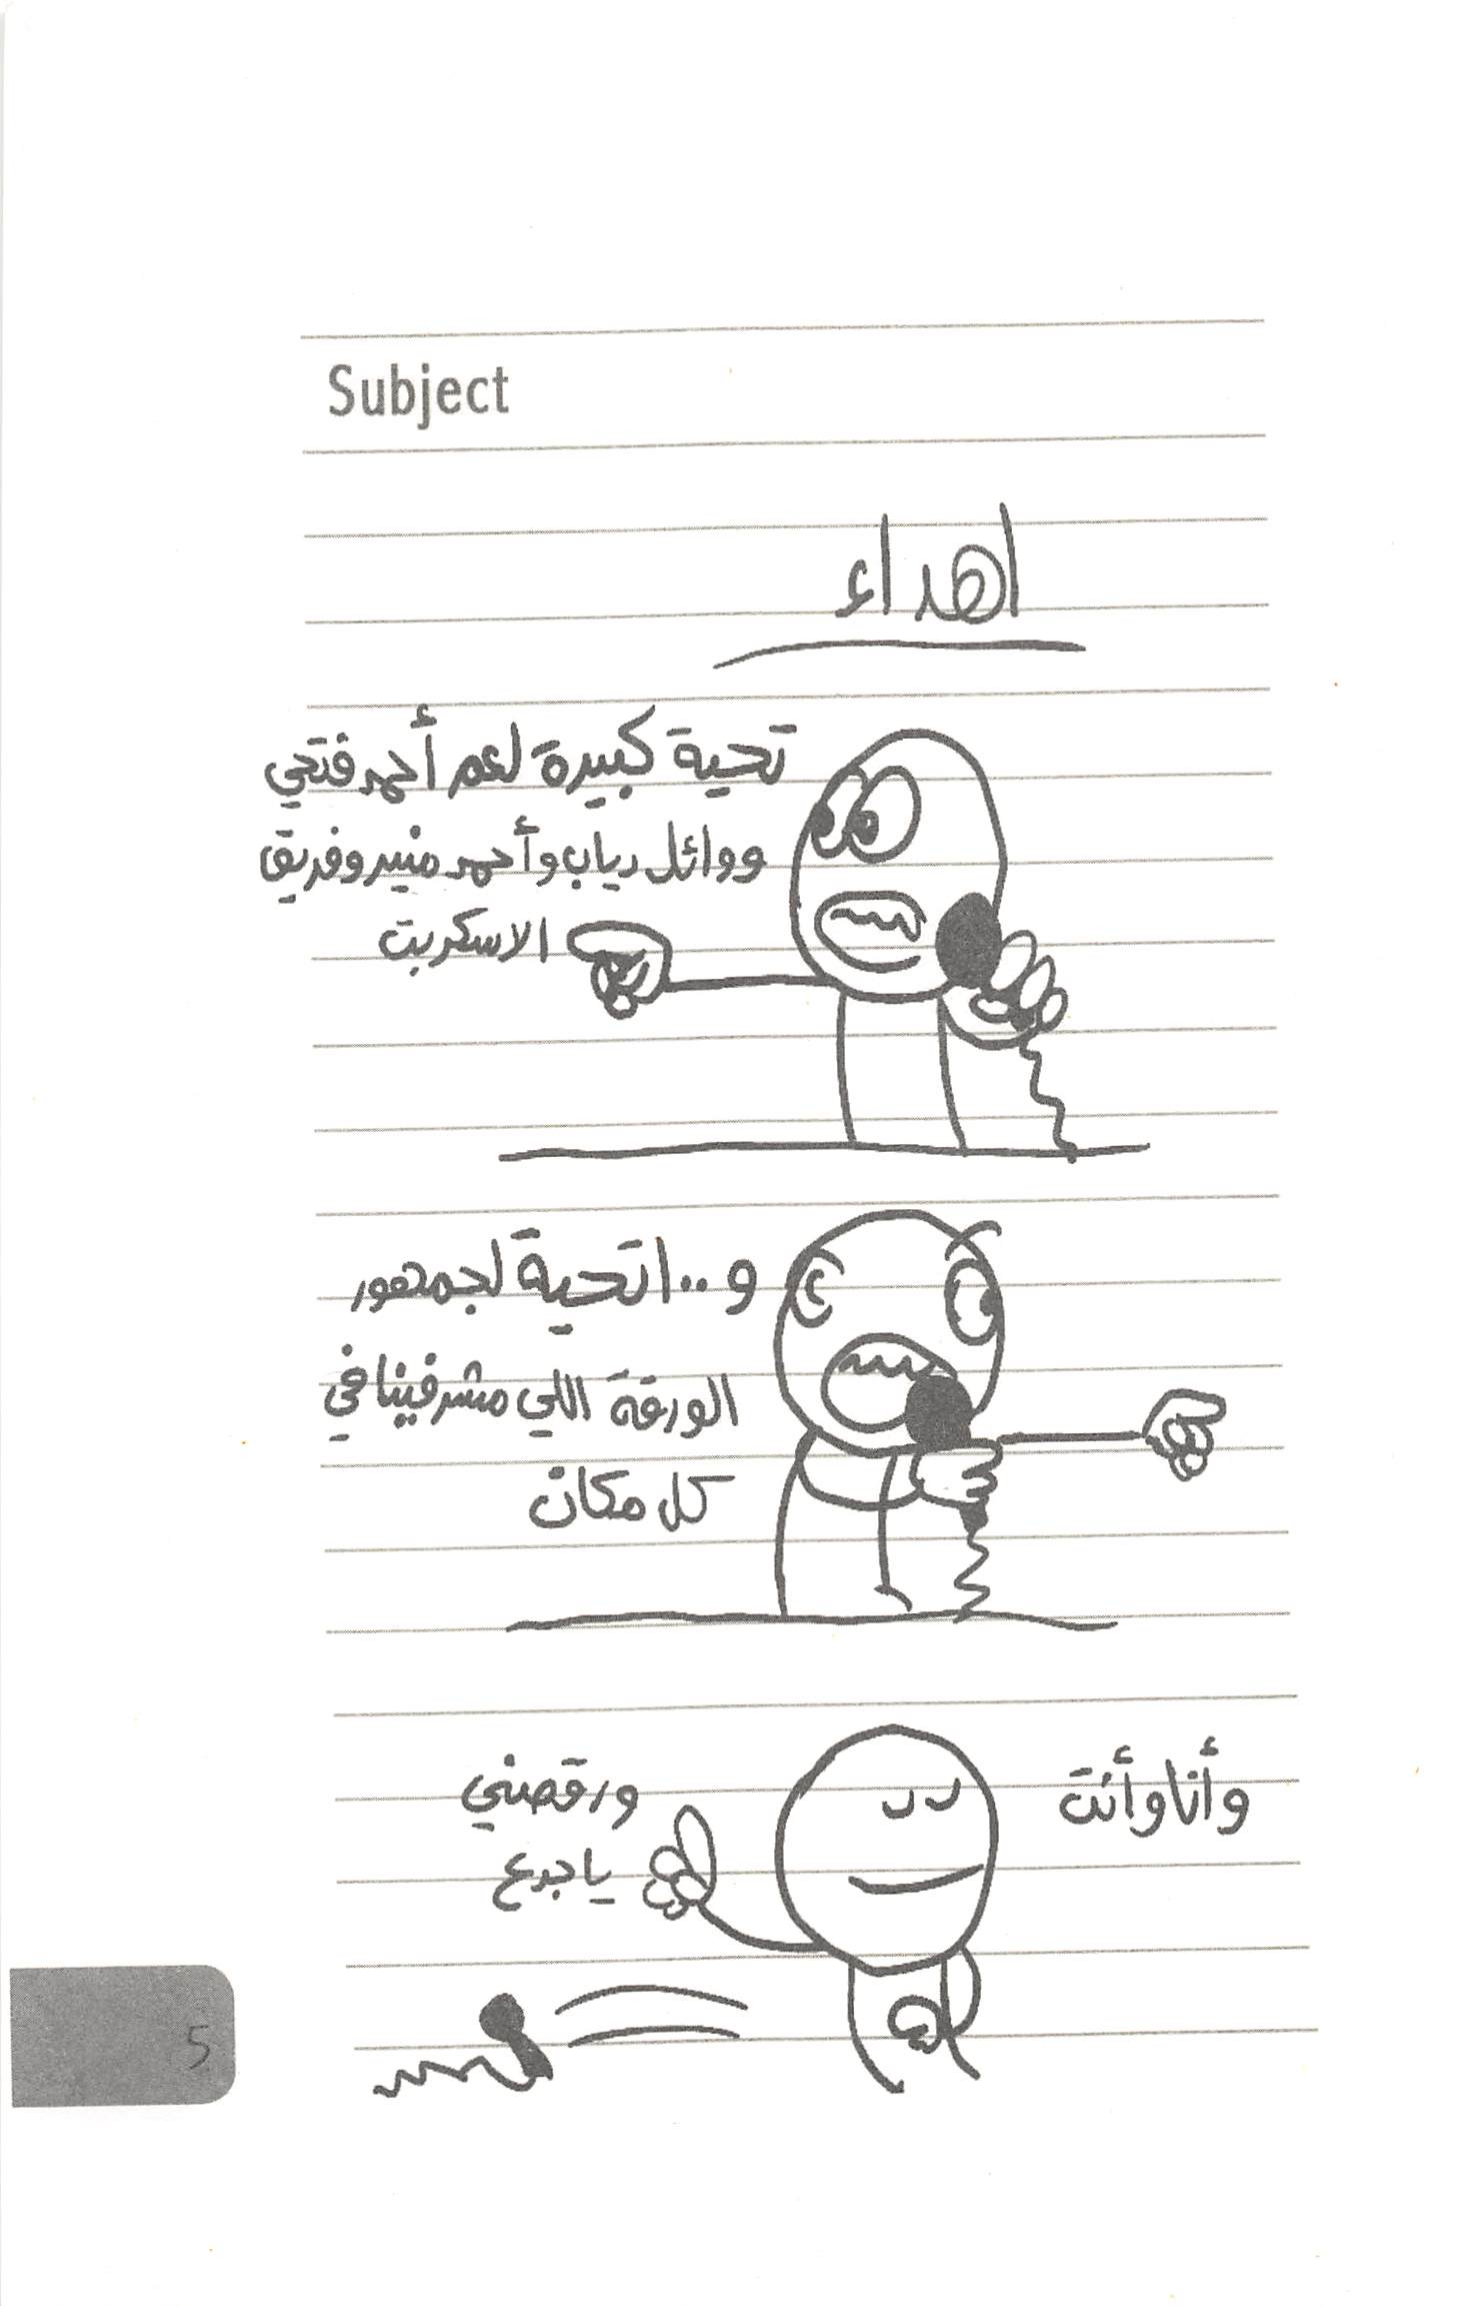 Subject
اهداء
تحية كبيرة لعم أحمد فتحي
ووائل دياب وأحمد منير وفريق
الاسكربت
و ..١ تحية لجمهور
الورقة اللي مشرفينا في
كل مكان
وأنا وأنت
ورقصني
يا جدع
5